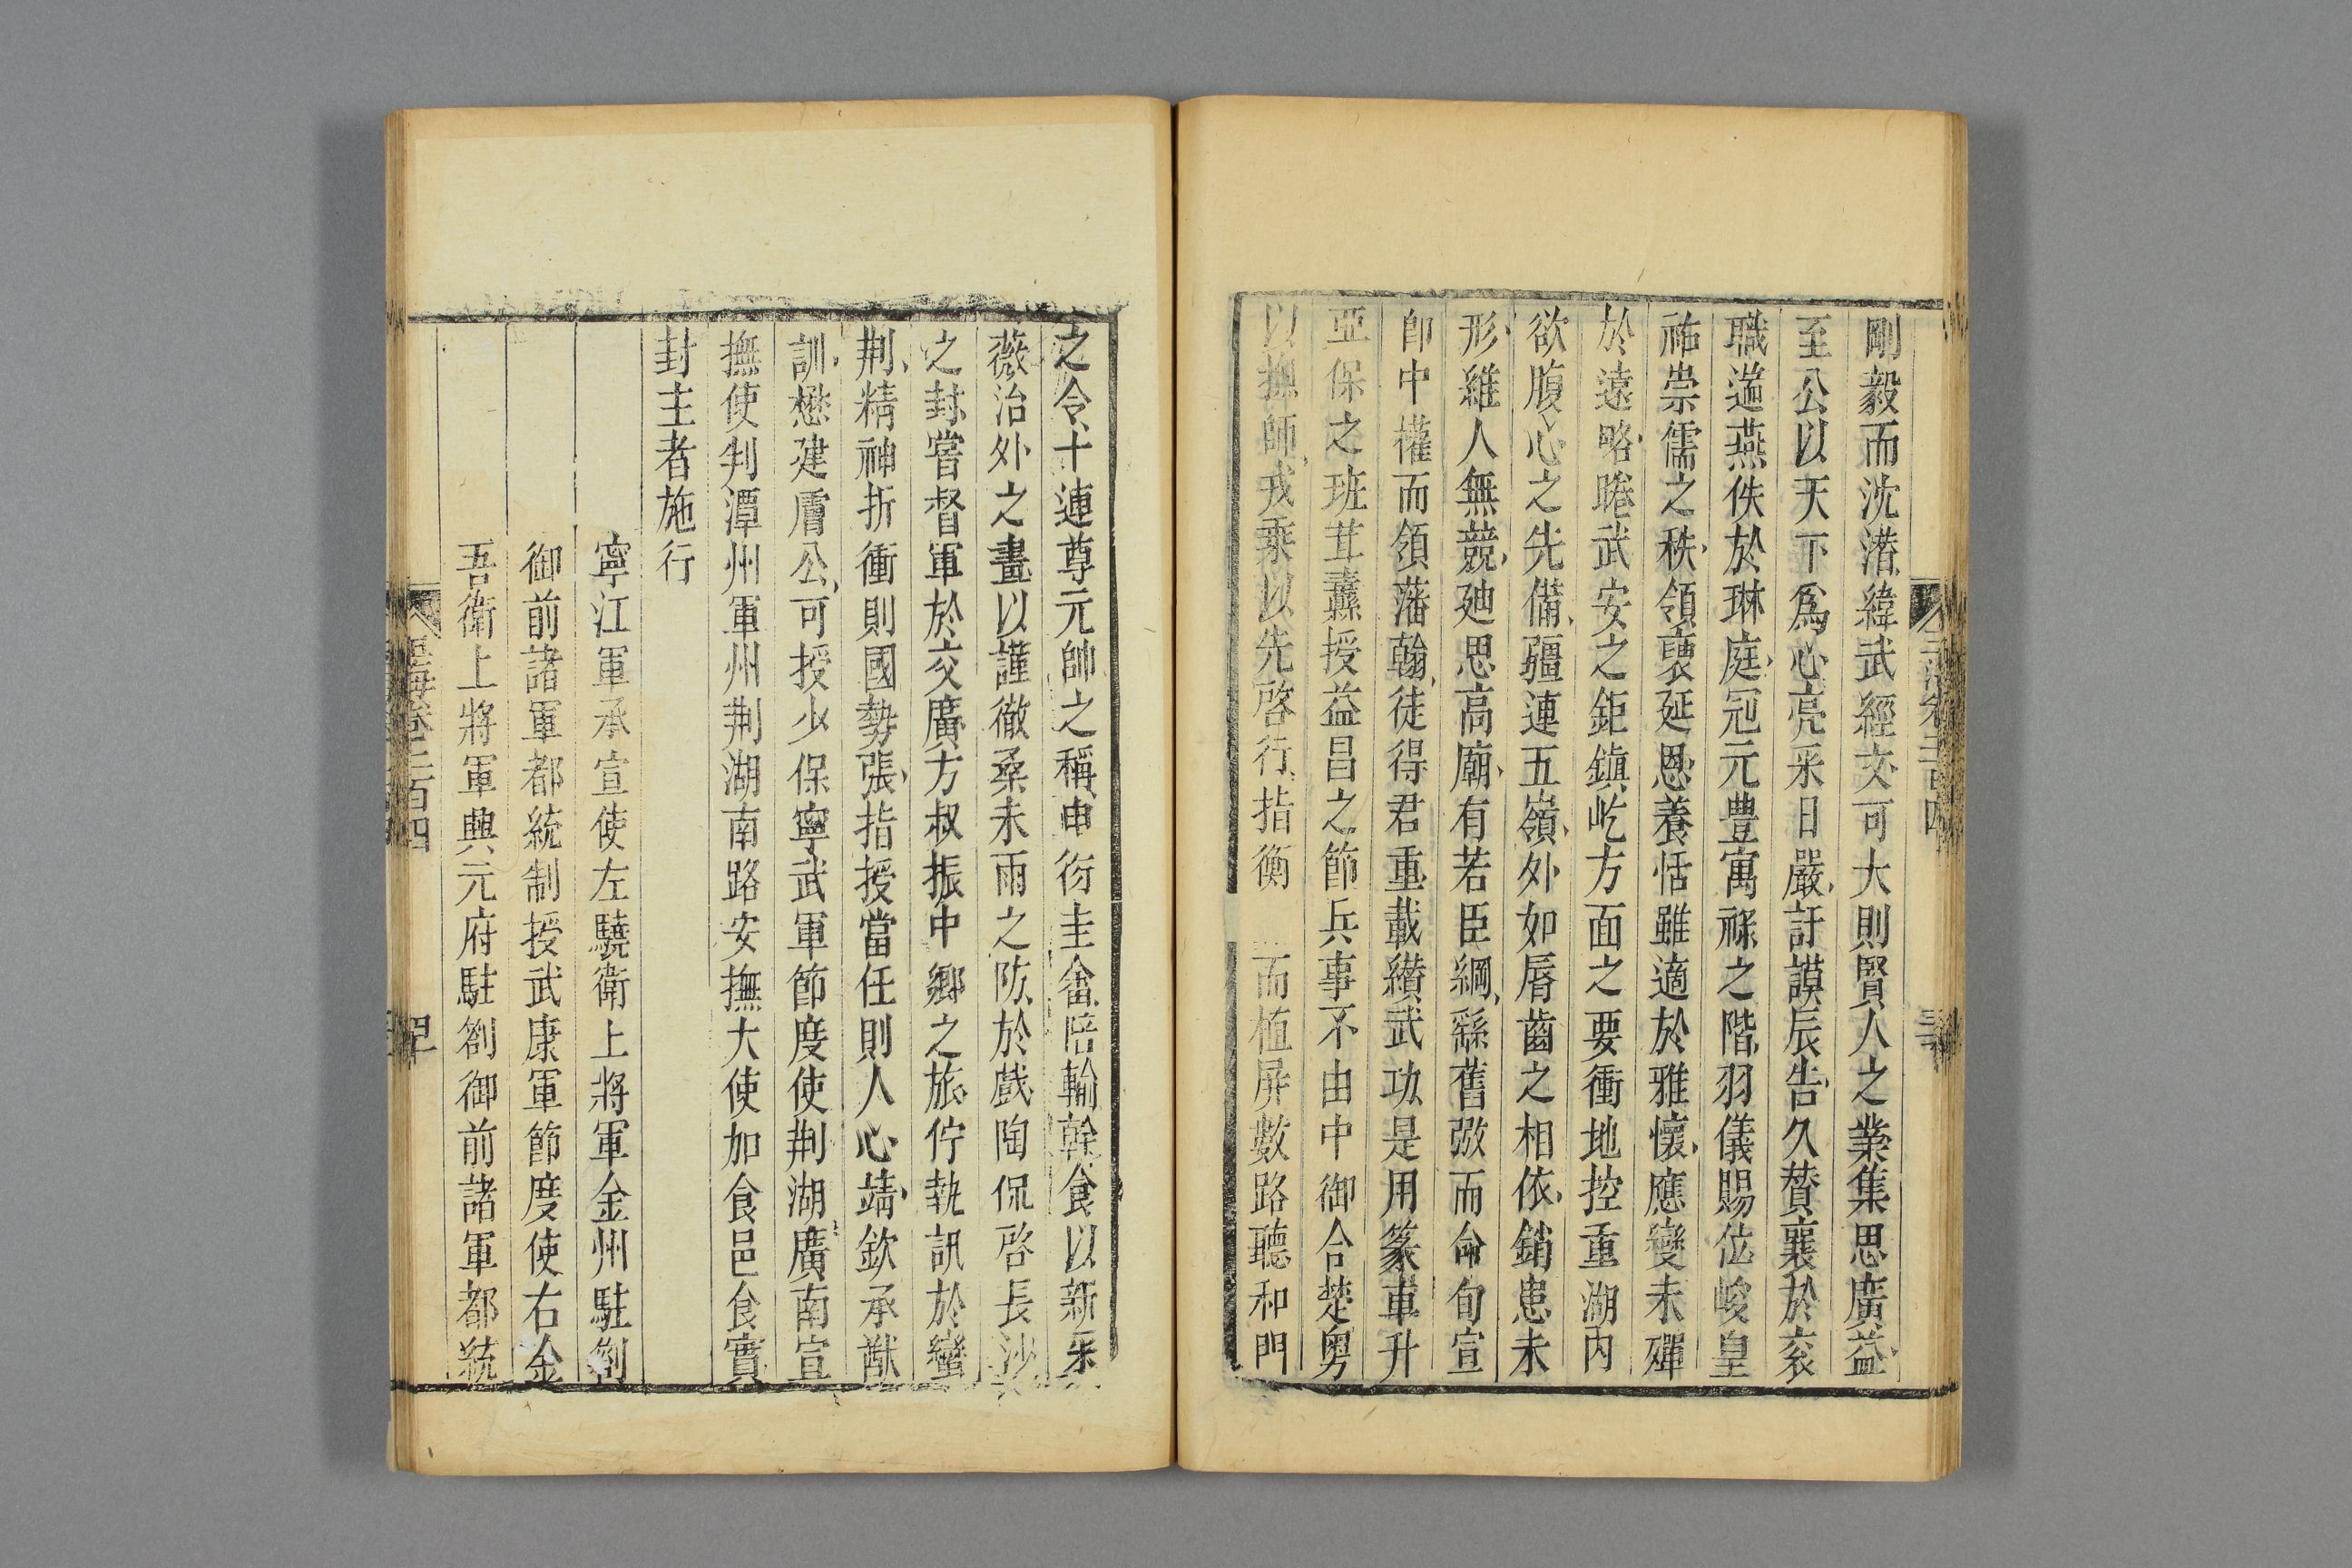 剛毅而沈潛緯武經文可大則賢人之業集思廣益
至公以天下爲心亮采日嚴訏謨辰告久贊襄於袞
職遄燕佚於琳庭冠元豊寓祿之階羽儀賜位峻皇
祐崇儒之秩領褒延恩養恬雖適於雅懷應變未殫
於遠略睠武安之鉅鎮屹方面之要衝地控重湖內
欲腹心之先備疆連五嶺外如唇齒之相依銷患未
形維人無競廸思高廟有若臣綱繇舊弼而命旬宣
卽中權而領藩翰徒得君重載纘武功是用篆車升
亞保之班茸纛授益昌之節兵事不由中御合楚粵
以撫師戎乘以先啓行指衡 而植屏數路聽和門
之令十連尊元帥之稱申衍圭畬陪輸幹食以新采
薇治外之畫以謹徹桑未雨之防於戲陶侃啓長沙
之封嘗督軍於交廣方叔振中鄉之旅佇執訊於蠻
荆精神折衝則國勢張指授當任則人心靖欽承猷
訓懋建膚公可授少保寧武軍節度使荆湖廣南宣
撫使判潭州軍州荆湖南路安撫大使加食邑食實
封主者施行
寧江軍承宣使左驍衛上將軍金州駐劄
御前諸軍都統制授武康軍節度使右金
吾衛上將軍興元府駐劄御前諸軍都統
玉海卷二百四